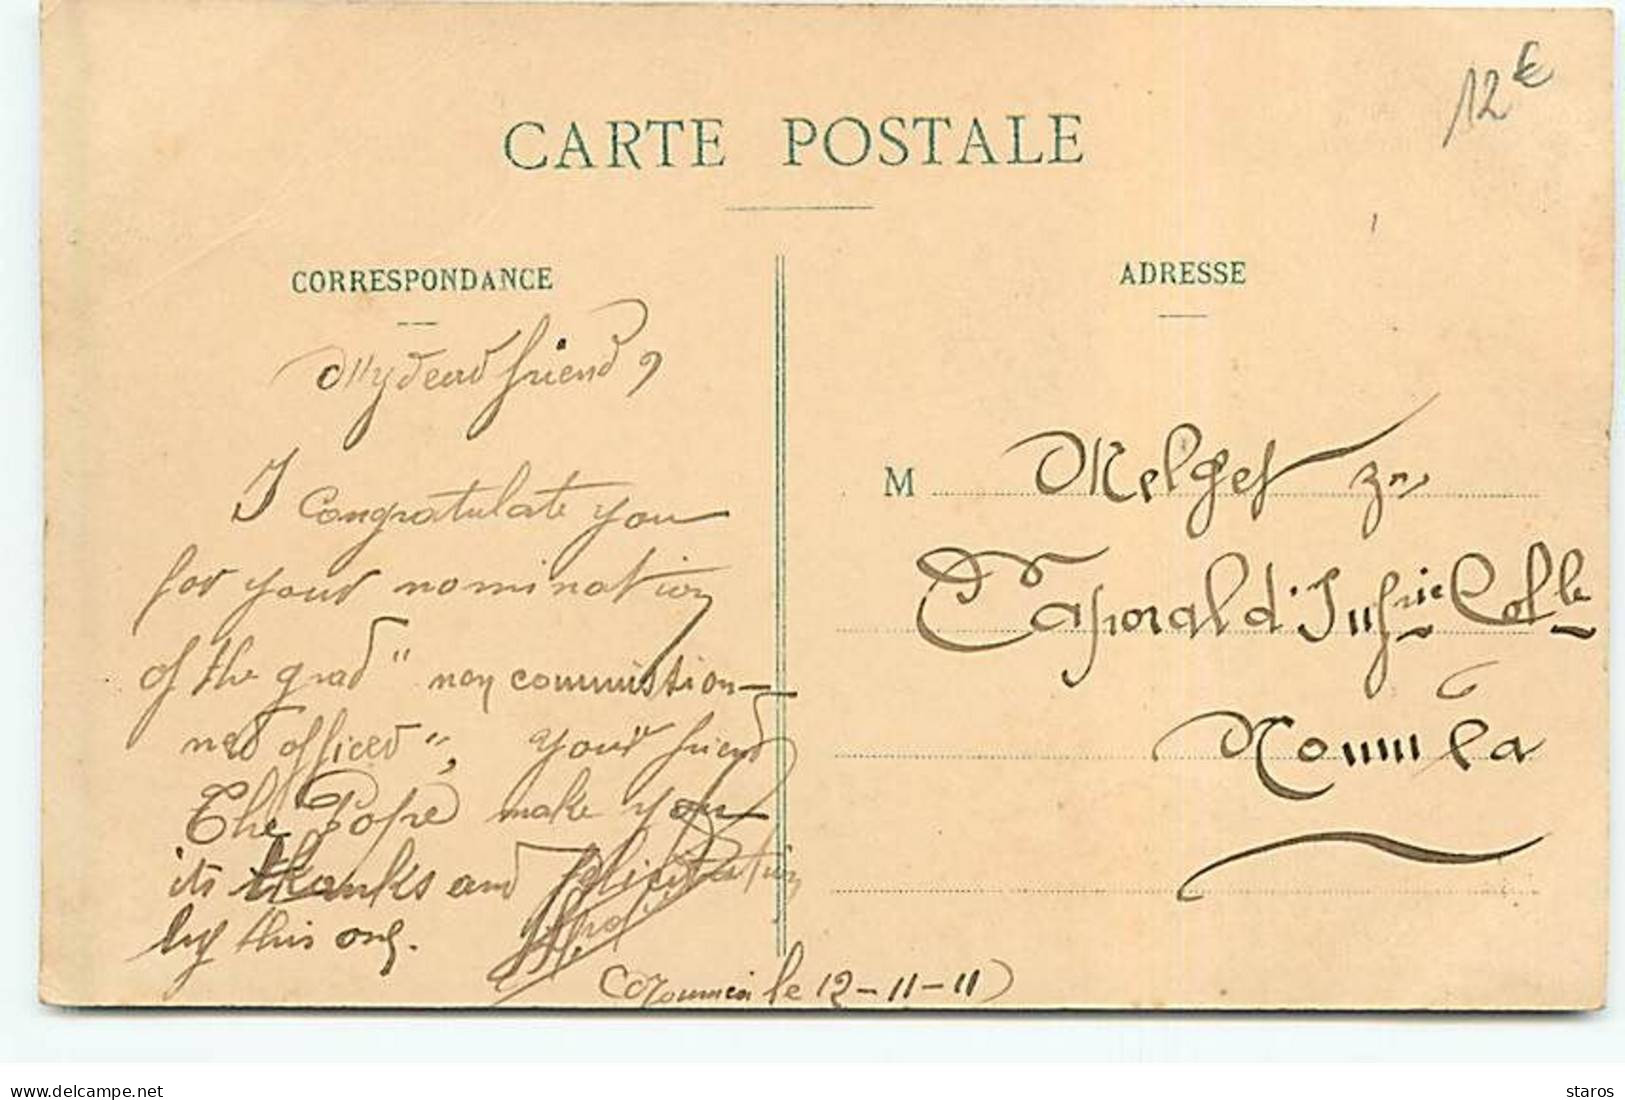 12€
CARTE POSTALE
CORRESPONDANCE
ADRESSE
My dear friend,
I congratulate you
for your nomination
of the grad " non commission-
ned officer", your friend
The Pope make you
its thanks and felicitation
by this one.
(Nouméa le 12-11-11)
M Melget
Caporal d'Inf.rie Col.le
à
Nouméa
delcampe.net
staros